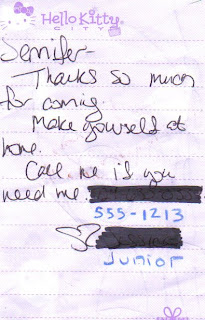 Hello Kitty
CITY
Jennifer-
Thanks so much
for coming.
Make yourself at
home.
Call me if you
need me
555-1213
Junior